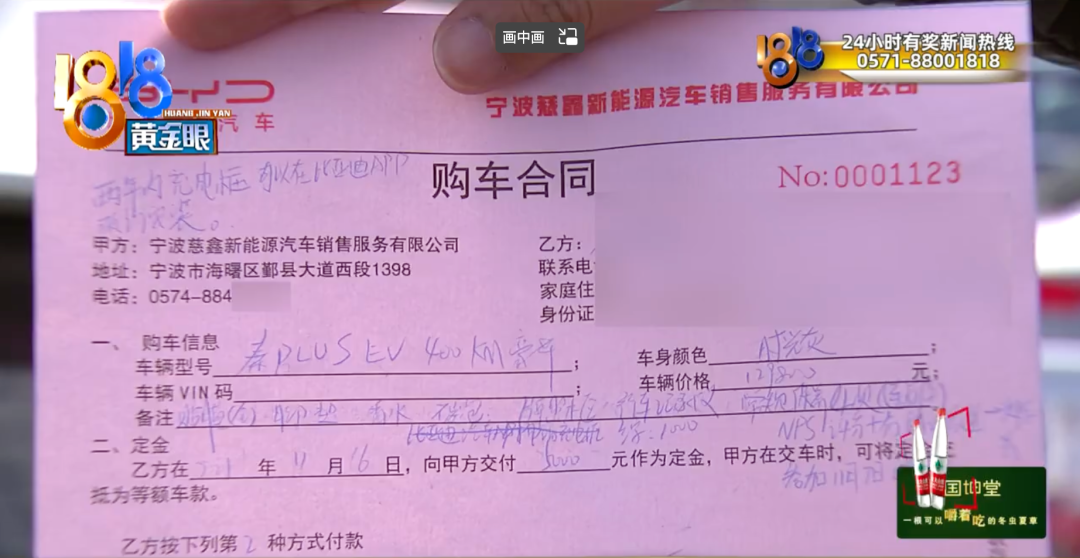 画中画
24小时有奖新闻热线
0571-88001818
1818
HUANG JIN YAN
黄金眼
汽车
宁波慈鑫新能源汽车销售服务有限公司
两年内充电桩 可以在比亚迪APP
购车合同
No:0001123
甲方：宁波慈鑫新能源汽车销售服务有限公司
乙方：
地址：宁波市海曙区鄞县大道西段1398
联系电
电话：0574-884
家庭住
身份证
一、 购车信息
车辆型号 秦PLUS EV 400KM豪华 ；
车身颜色 时光灰 ；
车辆VIN码 ；
车辆价格 129800 元；
备注 脚垫 香水 行车记录仪
1000
二、定金
乙方在 2021 年 11 月 16 日，向甲方交付 5000 元作为定金，甲方在交车时，可将定金
参加11月
抵为等额车款。
乙方按下列第 2 种方式付款
国坤堂
一根可以嚼着吃的冬虫夏草